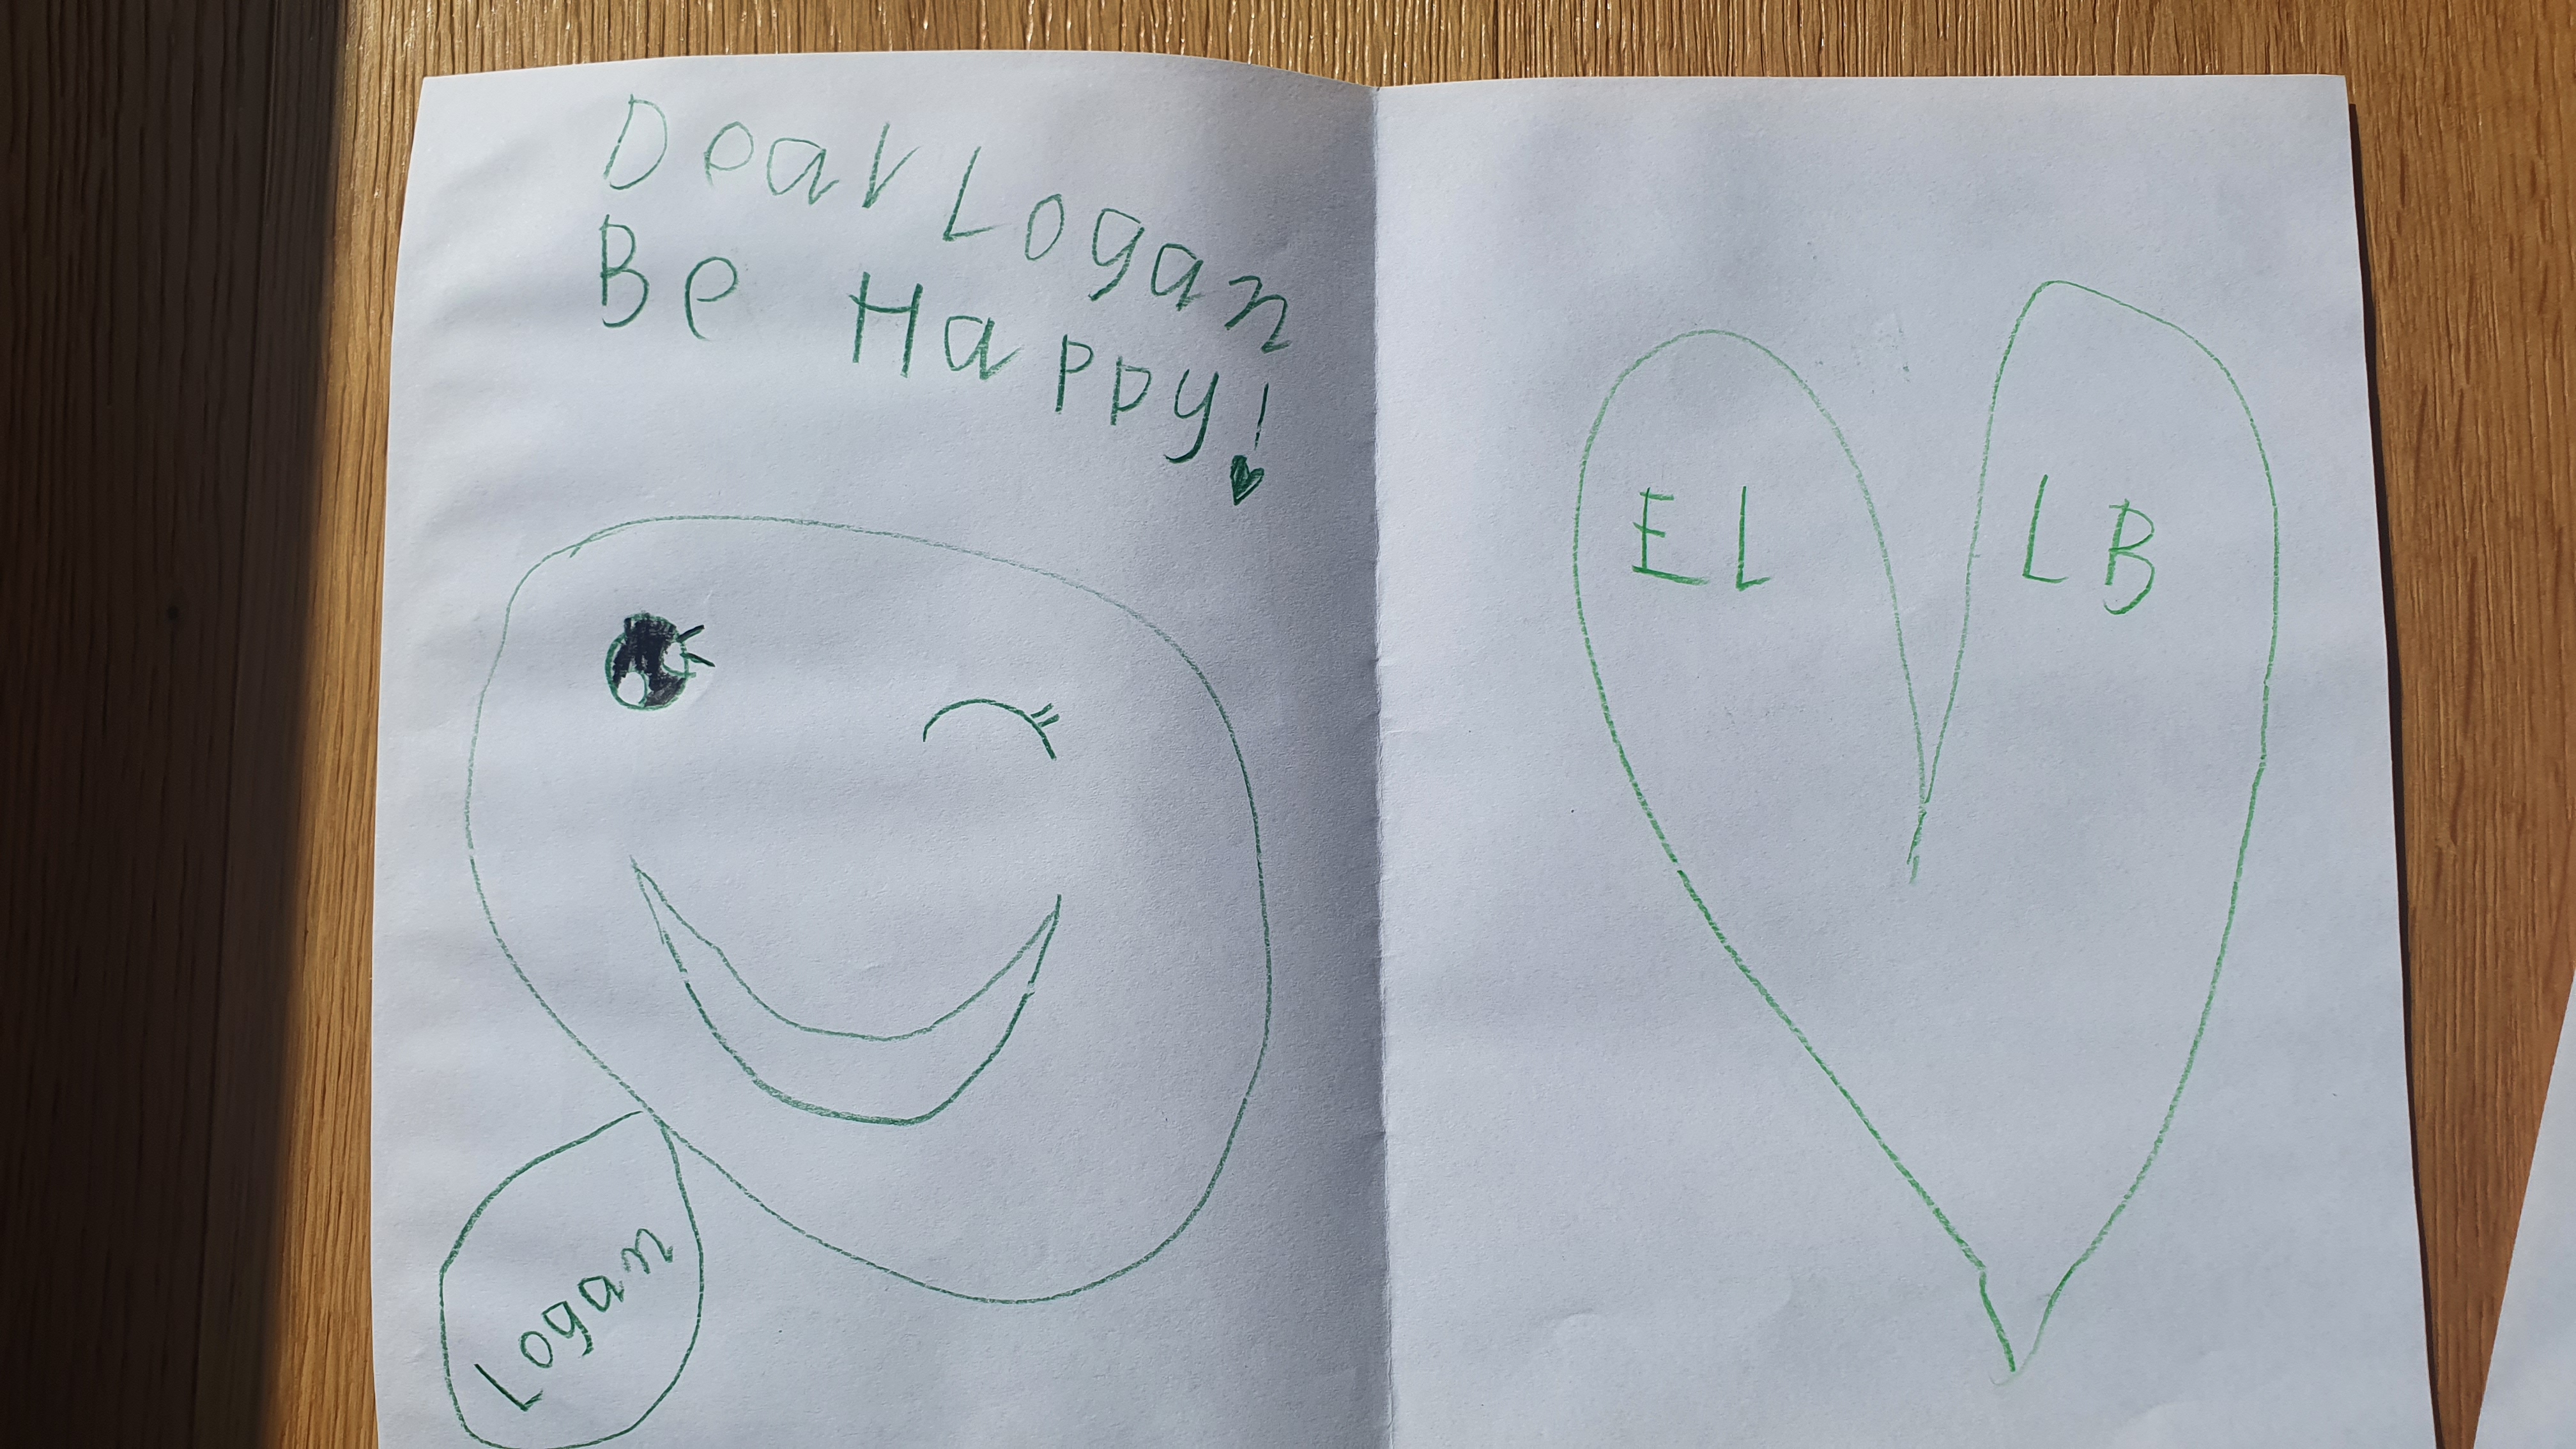 Dear Logan
Be Happy!
Logan
EL LB